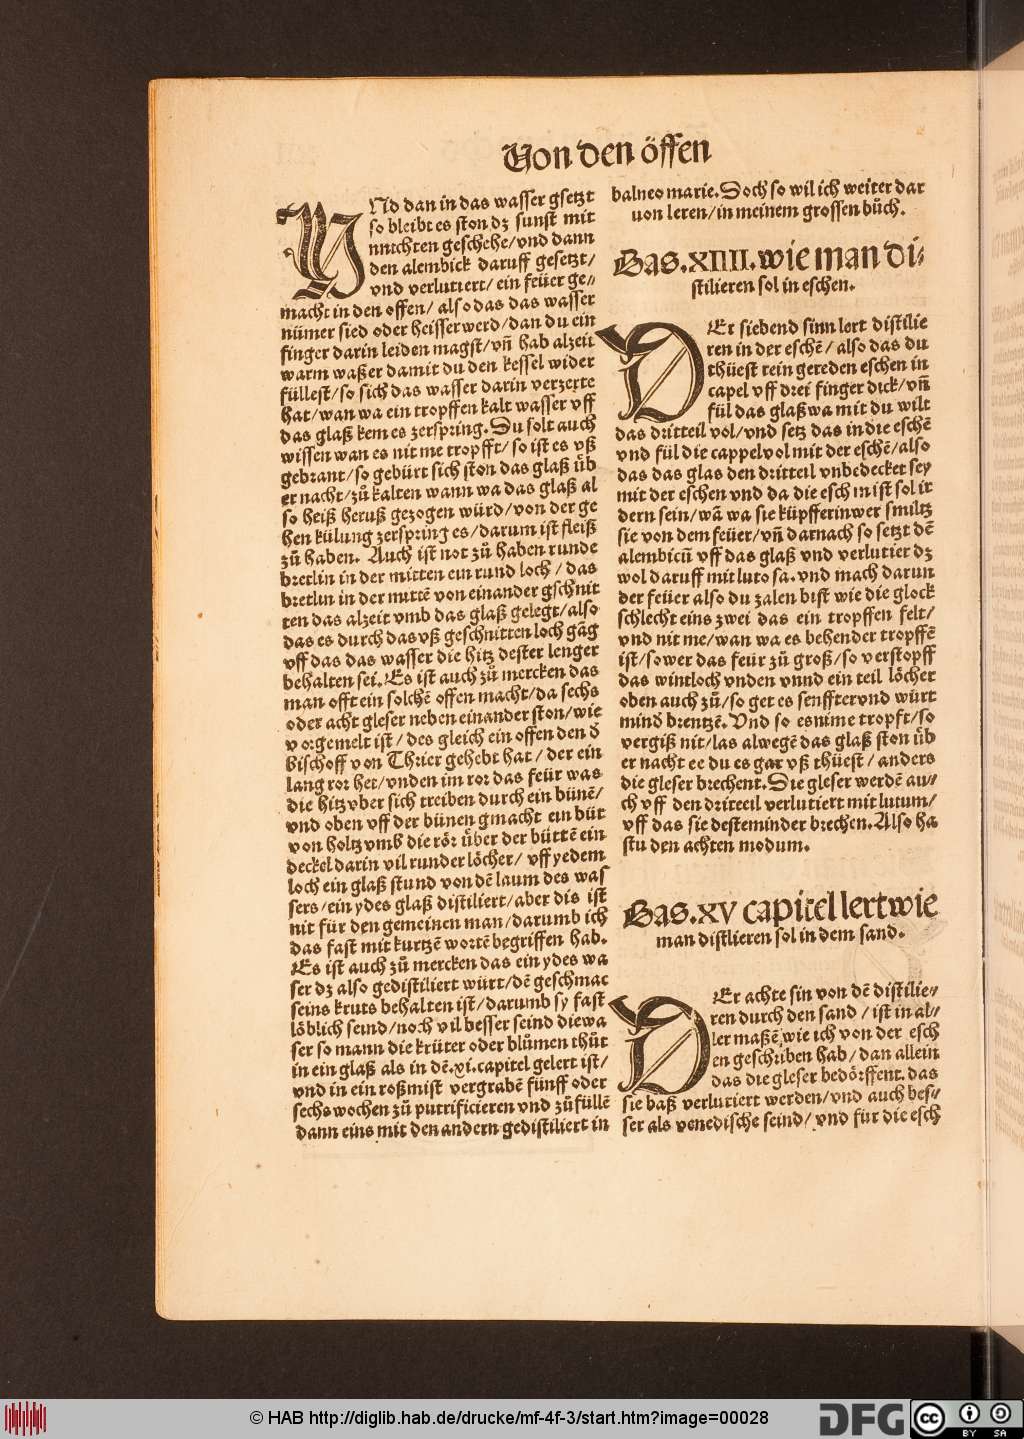 Von den öffen
VNd dan in das wasser gsetzt
so bleibt es ston dz sunst mit
nnichten geschehe/vnd dann
den alembick daruff gesetzt/
vnd verlutiert/ ein feüer ge⸗
macht in den offen/ also das das wasser
nümer sied oder heisser werd/dan du ein
finger darin leiden magst/vñ hab alzeit
warm waßer damit du den kessel wider
füllest/so sich das wasser darin verzerte
hat/wan wa ein tropffen kalt wasser vff
das glaß kem es zerspring. Du solt auch
wissen wan es nit me tropfft/so ist es vß
gebrant/so gebürt sich ston das glaß üb
er nacht/zů kalten wann wa das glaß al
so heiß heruß gezogen würd/von der ge
hen külung zerspring es/darum ist fleiß
zů haben. Auch ist not zů haben runde
bretlin in der mitten ein rund loch/das
bretlin in der mittē von einander gschnit
ten das alzeit vmb das glaß gelegt/also
das es durch das vß geschnitten loch gāg
vff das das wasser die hitz dester lenger
behalten sei. Es ist auch zů mercken das
man offt ein solchē offen macht/da sechs
oder acht gleser neben einander ston/wie
vorgemelt ist/des gleich ein offen den d̄
bischoff von Thrier gehebt hat/der ein
lang ror het/vnden im ror das feür was
die hitz vber sich treiben durch ein bünē/
vnd oben vff der bünen gmacht ein büt
von holtz vmb die rör über der büttē ein
deckel darin vil runder löcher/ vff yedem
loch ein glaß stund von dē laum des was
sers/ein ydes glaß distiliert/aber dis ist
nit für den gemeinen man/darumb ich
das fast mit kurtzē wortē begriffen hab.
Es ist auch zů mercken das ein ydes wa
ser dz also gedistiliert würt/dē geschmac
seins kruts behalten ist/darumb sy fast
löblich seind/noch vil besser seind die wa
ser so mann die krüter oder blůmen thůt
in ein glaß als in dē.xi.capitel gelert ist/
vnd in ein roßmist vergrabē fünff oder
sechs wochen zů putrificieren vnd zů füllē
dann eins mit den andern gedistiliert in
balneo marie. Doch so wil ich weiter dar
uon leren/in meinem grossen bůch.
Das.XIIII.wie man di⸗
stilieren sol in eschen.
DEr siebend sinn lert distilie
ren in der eschē/also das du
thüest rein gereden eschen in
capel vff drei finger dick/vñ
fül das glaß wa mit du wilt
das dritteil vol/vnd setz das in die eschē
vnd fül die cappel vol mit der eschē/also
das das glas den dritteil vnbedecket sey
mit der eschen vnd da die esch in ist sol ir
dern sein/wā wa sie küpfferin wer smiltz
sie von dem feüer/vñ darnach so setzt dē
alembicū vff das glaß vnd verlutier dz
wol daruff mit luto sa. vnd mach darun
der feüer also du zalen bist wie die glock
schlecht eins zwei das ein tropffen felt/
vnd nit me/wan wa es behender tropffē
ist/so wer das feur zů groß/so verstopff
das wintloch vnden vnnd ein teil löcher
oben auch zů/so get es senffter vnd würt
mind brentzē. Vnd so es nime tropft/so
vergiß nit/las alwegē das glaß ston üb
er nacht ee du es gar vß thüest/ anders
die gleser brechent. Die gleser werdē au⸗
ch vff den driteeil verlutiert mit lutum/
vff das sie desteminder brechen. Also ha
stu den achten modum.
Das.XV capitel lert wie
man distlieren sol in dem sand.
DEr achte sin von dē distilie⸗
ren durch den sand/ ist in al⸗
ler maßē wie ich von der esch
en geschriben hab/dan allein
das die gleser bedörffent. das
sie baß verlutiert werden/vnd auch bes⸗
ser als venedische seind/ vnd für die esch
© HAB http://diglib.hab.de/drucke/mf-4f-3/start.htm?image=00028
DFG
cc
BY SA